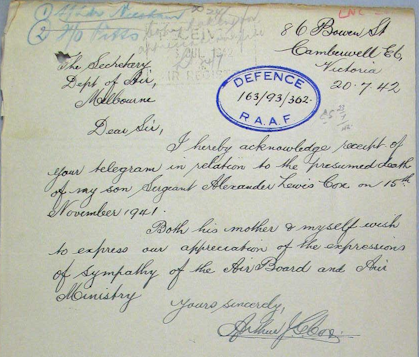 86 Bowen St
Camberwell E6,
Victoria
20.7.42
The Secretary
Dept of Air,
Melbourne
DEFENCE
163/93/302.
R.A.A.F
Dear Sir,
I hereby acknowledge receipt of
your telegram in relation to the presumed death
of my son Sergeant Alexander Lewis Cox, on 15th
November 1941.
Both his mother & myself wish
to express our appreciation of the expressions
of sympathy of the Air Board and Air
Ministry
Yours sincerely,
Arthur J Cox.